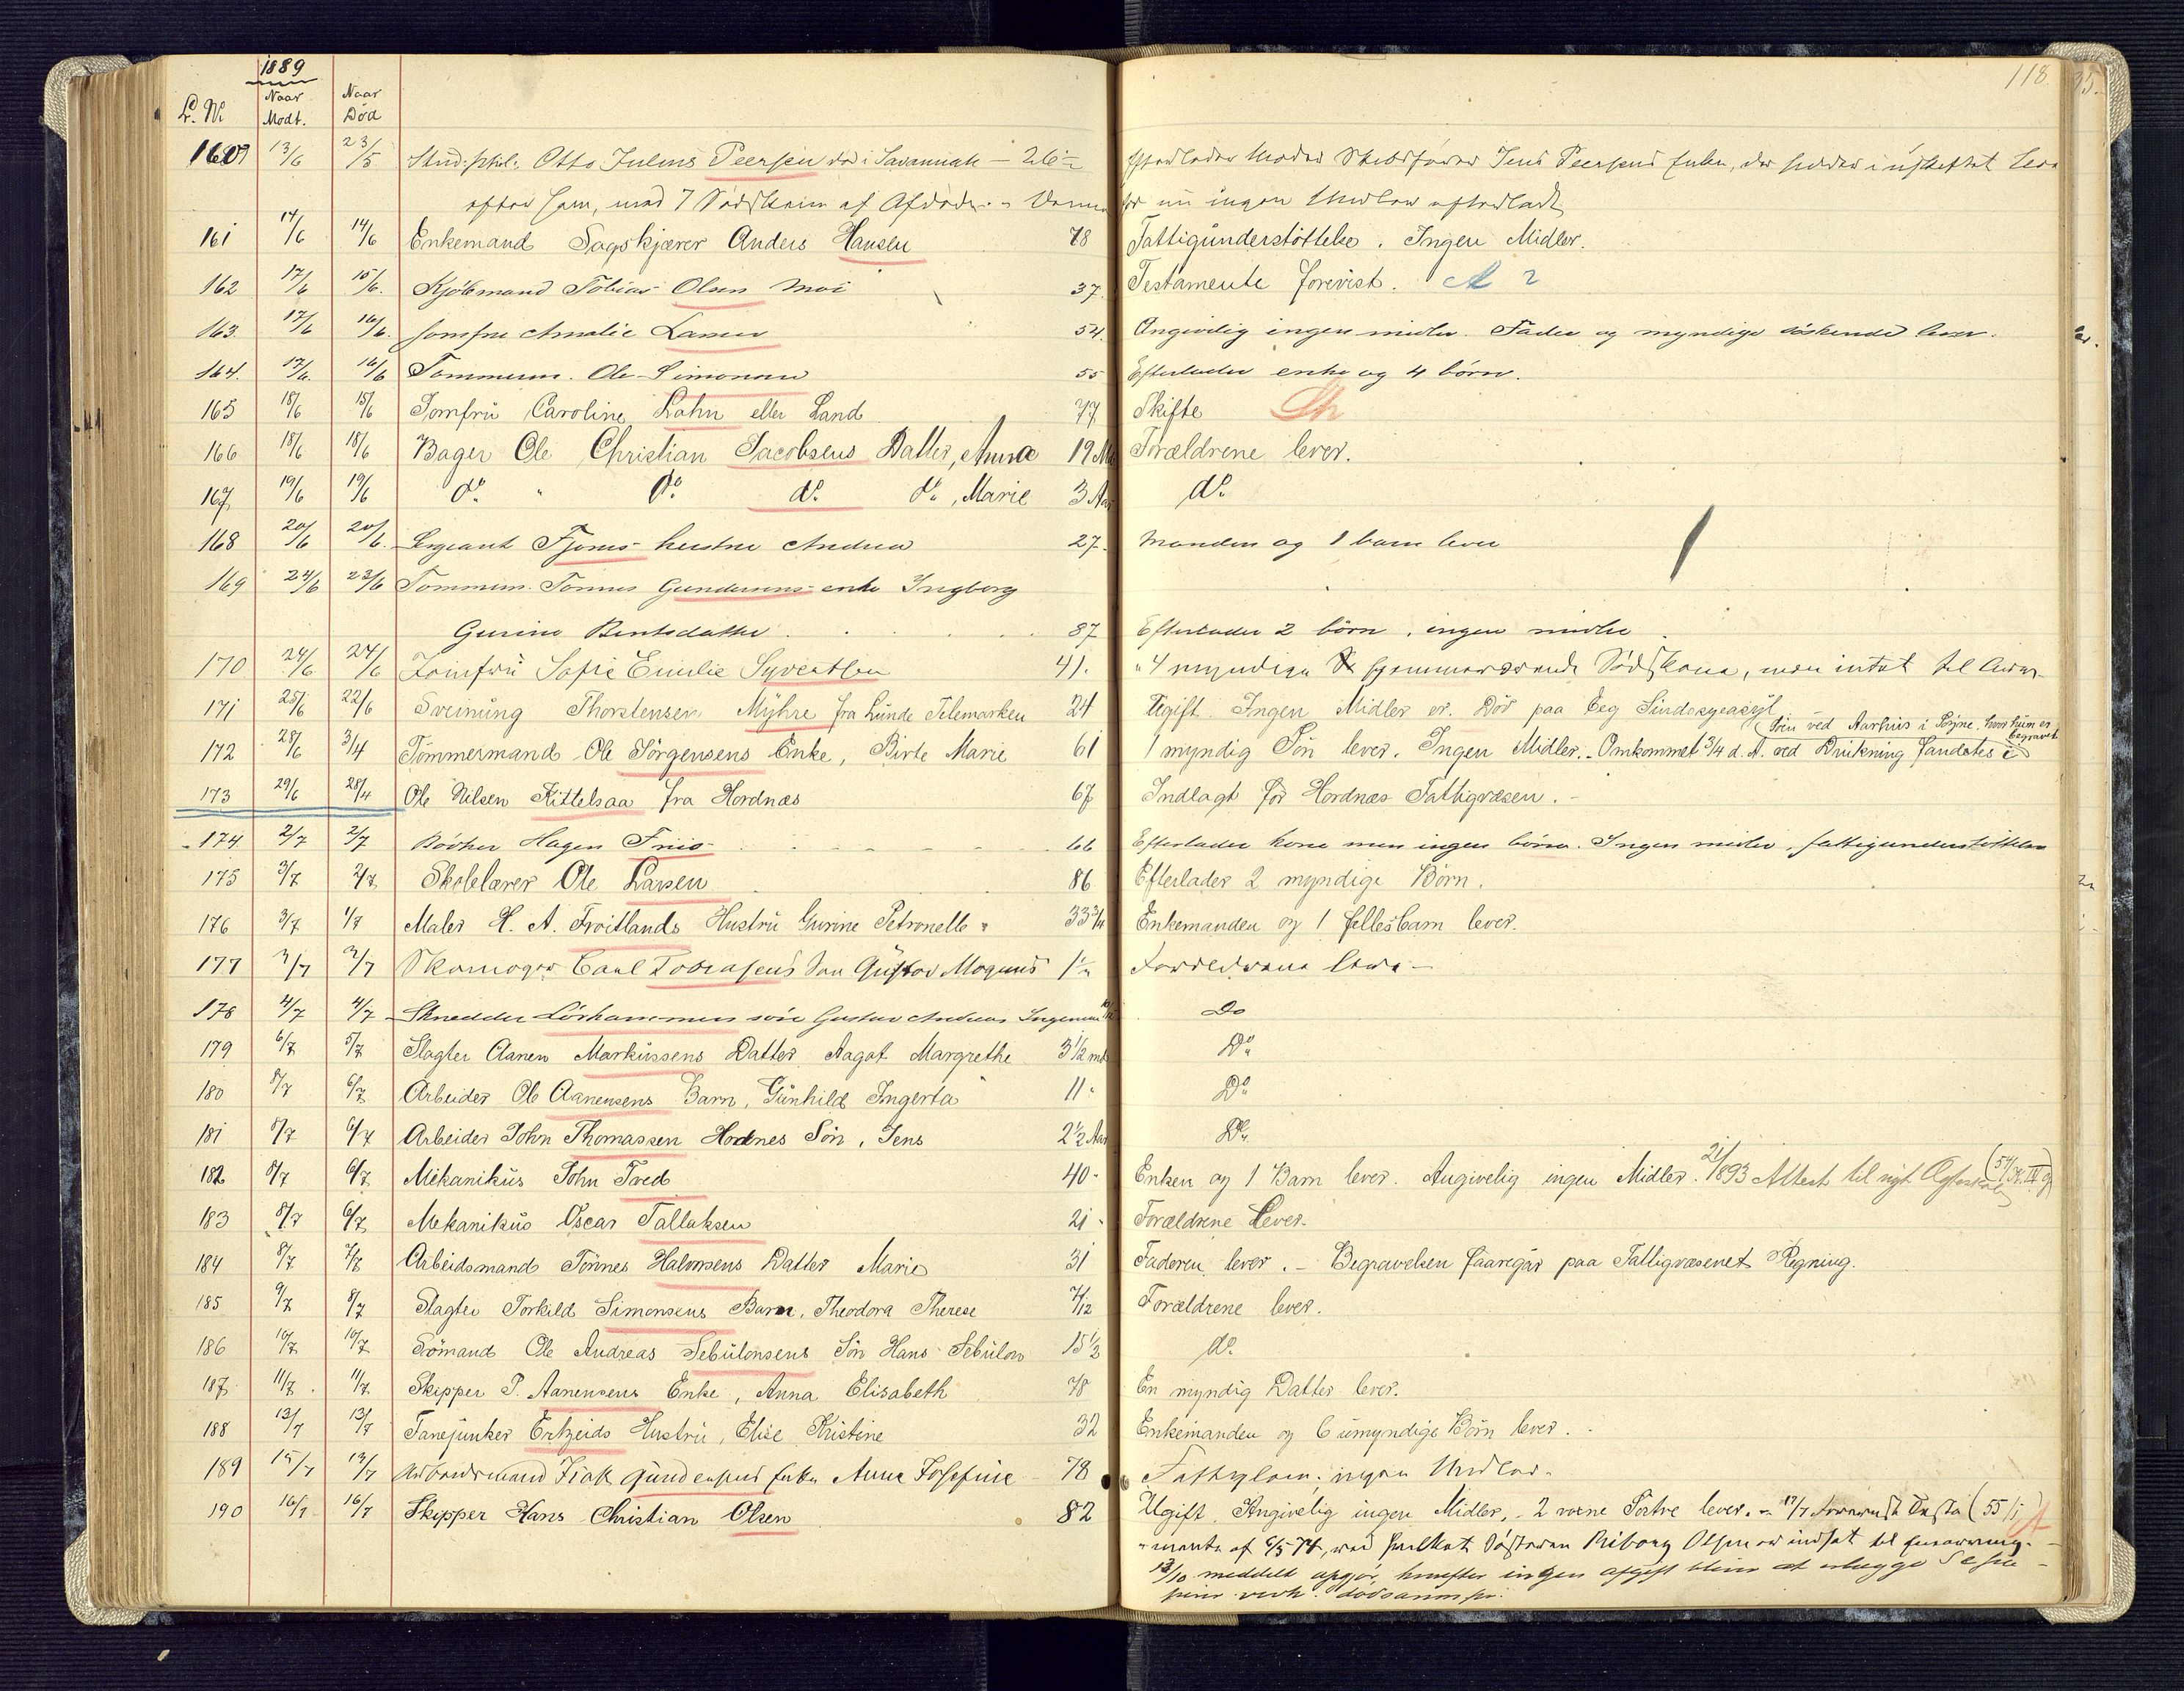 118.
1889
L. Nr. Naar Modt. Naar Död
160 13/6 23/5 Stud. phil. Otto Julius Peersen död i Savannah – 26 – Efterlader Moder Skibsfører Jens Peersens Enke, der sidder i uskiftet
efter ham, med 7 Södskein af Afdöde. – ingen Midler efterladt
161 14/6 14/6 Enkemand Sagskjærer Anders Hansen 78 Fattigunderstöttelse. Ingen Midler.
162 17/6 15/6 Kjöbmand Tobias Olsen Moi 37. Testamente forevist.
163. 17/6 16/6. Jomfru Amalie Larsen 54. Angivelig ingen midler. Fader og myndige söskende lever.
164. 17/6. 16/6 Tømmerm. Ole Simonsen 55 Efterlader enke og 4 börn.
165 18/6 15/6 Jomfru Caroline Lahn eller Land 77 Skifte
166 18/6 18/6 Bager Ole Christian Jacobsens Datter, Anna 19 M Forældrene lever.
167 19/6 19/6 do. " do. do. do., Marie 3 Aar do.
168 20/6 20/6. Sergeant Fjones hustru Andrea 27. Manden og 1 barn lever
169 24/6 23/6 Tømmerm. Tønnes Gundersens enke Ingborg
Gurine Berntsdatter 87 Efterlader 2 börn, ingen midler.
170 24/6 24/6 Jomfru Sofie Emilie Syvertsen 41. " 4 myndige hjemmeværende Södskene, men intet til
171 25/6 22/6 Sveinung Thorstensen Myhre fra Lunde Telemarken 24 Ugift. Ingen Midler er. Död paa Eeg Sindssygeasyl
172 28/6 3/4 Tømmermand Ole Jörgensens Enke, Birte Marie 61 1 myndig Sön lever. Ingen Midler. – Omkommet 3/4 d. A. ved Drukning fandtes i Söen ved Aarhus i Söyne, hvor hun er begravet
173 29/6 28/4 Ole Nilsen Kittelsaa fra Hordnæs 67 Indlagt for Hordnæs Fattigvæsen. –
174 2/7 2/7 Bödker Hagen Friis 66 Efterlader kone men ingen börn. Ingen midler, fattigunderstöttelse
175 3/7 2/7 Skolelærer Ole Larsen 86 Efterlader 2 myndige Börn.
176 3/7 1/7 Maler H. A. Froitlands Hustru Gurine Petronelle 33 3/4 Enkemanden og 1 fellesbarn lever.
177 3/7 2/7 Skomager Carl Tobiasens Sön Gustav Magnus Forældrene lever –
178 4/7 4/7 Skredder sön Gustav Andreas Ingeman Do
179 6/7 5/7 Slagter Aanen Markussens Datter Aagot Margrethe 3 1/2 md Do.
180 8/7 6/7 Arbeider Ole Aanensens Barn, Gunhild Ingerta 11 " Do.
181 8/7 6/7 Arbeider John Thomassen Hodnes Sön, Jens 2 1/2 Aar Do.
182 8/7 6/7 Mekanikus John Tved 40 – Enken og 1 Barn lever. Angivelig ingen Midler. 2/1 1893 Attest til nyt Ægteskab
183 8/7 6/7 Mekanikus Oscar Tallaksen 21 – Forældrene Lever.
184 8/7 7/7 Arbeidsmand Tönnes Halvorsens Datter Marie 31 Faderen lever. – Begravelsen foaregår paa Fattigvæsenets Regning.
185 9/7 8/7 Slagter Torkild Simonsens Barn, Theodora Therese 7/12 Forældrene lever.
186 10/7 10/7 Sömand Ole Andreas Sebulonsens Sön Hans Sebulon 15 1/2 do.
187 11/7. 11/7 Skipper P. Aanensens Enke, Anna Elisabeth 78 En myndig Datter lever.
188 13/7 13/7 Fanejunker Ertzeids Hustru, Elise Kristine 32 Enkemanden og 6 umyndige Börn lever.
189 15/7 12/7 Arbeidsmand Isak Gundersens Enke Anne Josefine 78 Fattiglem; ingen Midler.
190 16/7 16/7 Skipper Hans Christian Olsen 82 Ugift. Angivelig ingen Midler. – 2 voxne Söstre lever. – 17/7 Testa (55/1)
mente af 6/5 74, ved hvilket Söstrene Olsen er indsat til
13/10 meddelt ingen afgift